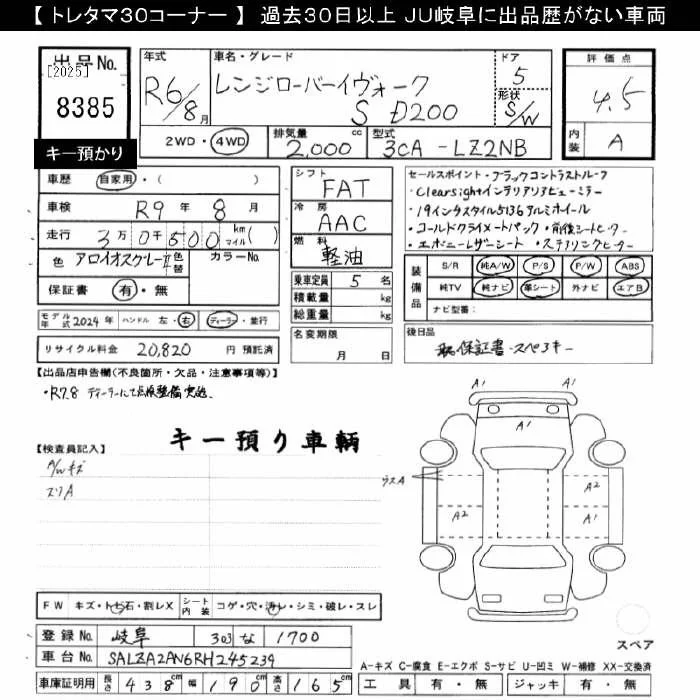 【 トレタマ30コーナー 】 過去30日以上 JU岐阜に出品歴がない車両
出品No.
[2025]
8385
キー預かり
年式
R6/8月
車名・グレード
レンジローバーイヴォーク
S D200
ドア
5
形状
S/W
評価点
4.5
内装
A
2WD・4WD
排気量 cc
2,000
型式
3CA - LZ2NB
車歴 自家用・( )
車検 R9 年 8 月
走行 3万0千500 km マイル( )
色 アロイオスグレーII 色替 カラーNo.
保証書 有・無
シフト
FAT
冷房
AAC
燃料
軽油
乗車定員 5 名
積載量 kg
総重量 kg
セールスポイント・ブラックコントラストルーフ
・Clearsightインテリアリアビューミラー
・19インチスタイル5136アルミホイール
・コールドクライメートパック ・前後シートヒーター
・エボニーレザーシート ・ステアリングヒーター
装備品
S/R 純A/W P/S P/W ABS
純TV 純ナビ 革シート 外ナビ エアB
ナビ型番:
モデル年式 2024年 ハンドル 左・右 ディーラー・並行
リサイクル料金 20,820 円 預託済
名変期限
月 日
後日品
保証書・スペアキー
【出品店申告欄(不良箇所・欠品・注意事項等)】
・R7.8 ディーラーにて点検整備実施.
キー預り車輌
【検査員記入】
A/Wキズ
スリA
A1
A1
A1
ウスA
A2
A2
A1
FW キズ・トビ石・割レX シート内装 コゲ・穴・汚レ・シミ・破レ・スレ
登録No. 岐阜 303 な 1700
車台No. SALZA2AN6RH245239
車庫証明用 長さ 438cm 幅 190cm 高さ 165cm
スペア
A-キズ C-腐食 E-エクボ S-サビ U-凹ミ W-補修 XX-交換済
工具 有・無 ジャッキ 有・無